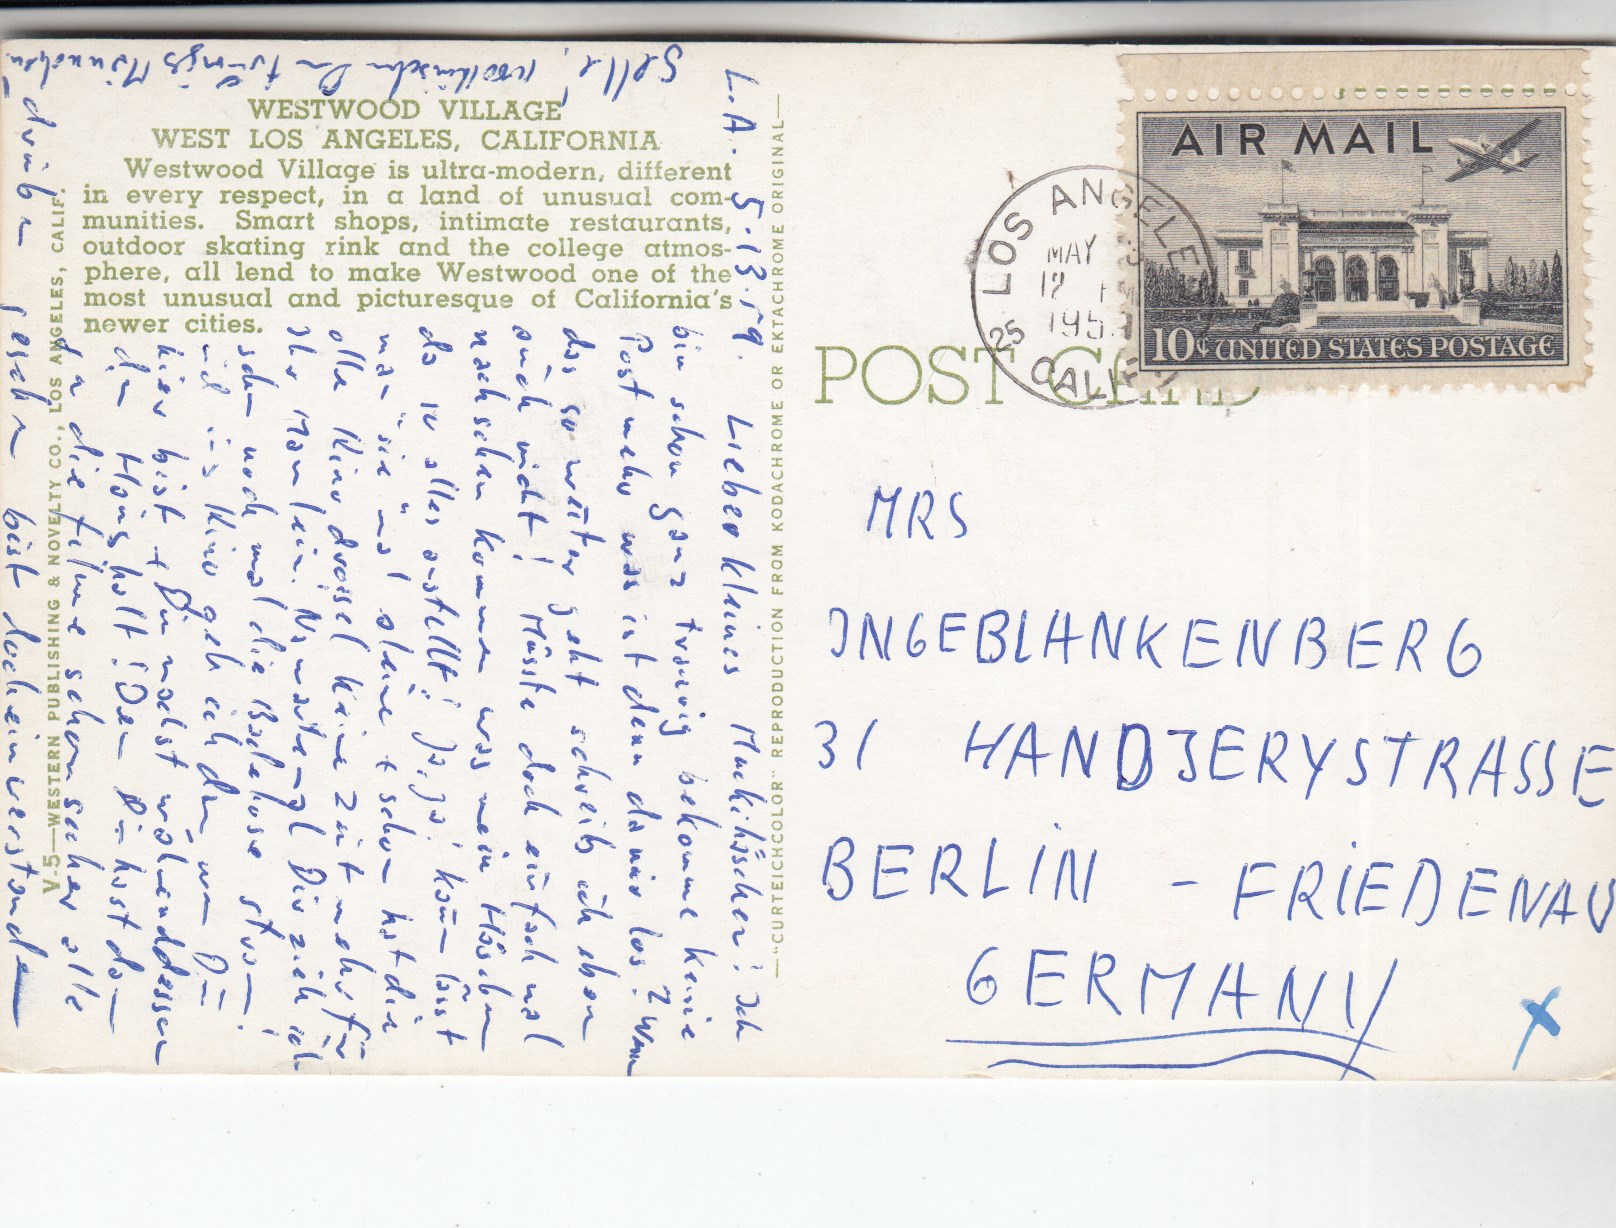 WESTWOOD VILLAGE
WEST LOS ANGELES, CALIFORNIA
Westwood Village is ultra-modern, different
in every respect, in a land of unusual com-
munities. Smart shops, intimate restaurants,
outdoor skating rink and the college atmos-
phere, all lend to make Westwood one of the
most unusual and picturesque of California's
newer cities.
V-5—WESTERN PUBLISHING & NOVELTY CO., LOS ANGELES, CALIF.
—"CURTEICHCOLOR" REPRODUCTION FROM KODACHROME OR EKTACHROME ORIGINAL—
L.A. 5.13.59. Liebes kleines ! Ich
bin schon ganz traurig bekomme keine
Post mehr was ist denn da nur los? Wenn
das so weiter geht schreib ich eben
auch nicht! Müsste doch einfach mal
nachsehen kommen was mein Häschen
da so alles anstellt! Ja, ja! kaum lässt
man sie mal alleine + schon hat die
olle Kinodrossel keine Zeit mehr für
ihr
sehen noch mal die Badehose stramm!
will ins Kino geh ich denn wenn Du
hier bist + Du machst währenddessen
den Haushalt! Denn Du hast dann
ja die Filme schon sicher alle
drüben gesehen bist doch einverstanden
Gelle,
POST CARD
AIR MAIL
10¢ UNITED STATES POSTAGE
LOS ANGELES
MAY
12 PM
1959
25 CALIF
MRS
INGEBLANKENBERG
31 HANDJERYSTRASSE
BERLIN - FRIEDENAU
GERMANY
X